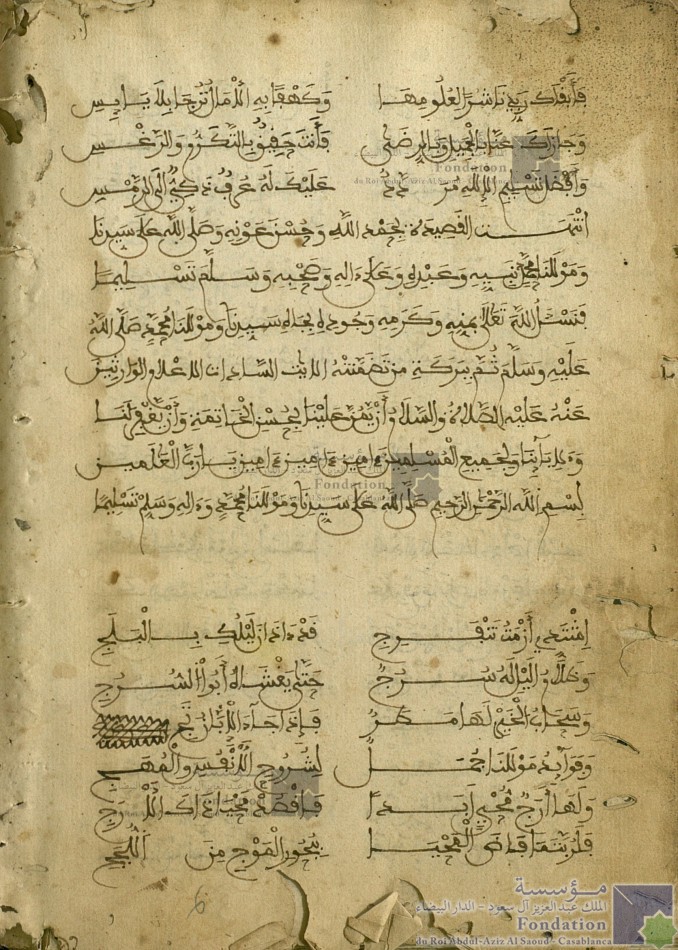 فأبقاك ربي ناشر العلومها وكهفا به الامال ترجا بلا يايس
وجازاك عنا بالجميل وبالرضى فأنت حقيق بالتكرم والرغس
وأفضل تسليم الاله عليك له عرف ذكي الى الرمس
انتهت القصيدة بحمد الله وحسن عونه وصلى الله على سيدنا
ومولانا محمد نبيه وعبده وعلى ءاله وصحبه وسلم تسليما
فنسئل الله تعالى بمنه وكرمه وجوده بجاه سيدنا ومولانا محمد صلى الله
عليه وسلم ثم ببركة من تضمنته الابيت السادات الاعلام الوارثين
عنه عليه الصلاة والسلام وأن يمن علينا بحسن الخاتمة وأن يغفر لنا
ولابائنا ولجميع المسلمين ءامين ءامين ءامين يارب العلمين
بسم الله الرحمن الرحيم صلى الله على سيدنا ومولانا محمد وءاله وسلم تسليما
اشتدي أزمة تنفرج قد ءاذن ليلك بالبلج
وظلام الليل له سرج حتى يغشاه أبو السرج
وسحاب الخير لها مطر فإذا جاء الابان تج
وفوايد مولانا جمل لسروج الانفس والمهج
ولها أرج محي أبدا فاقصد محيا ذاك الارج
فلربتما فاض المحيا ببحور الموج من اللجج
مؤسسة
الملك عبد العزيز آل سعود - الدار البيضاء
Fondation
du Roi Abdul-Aziz Al Saoud - Casablanca